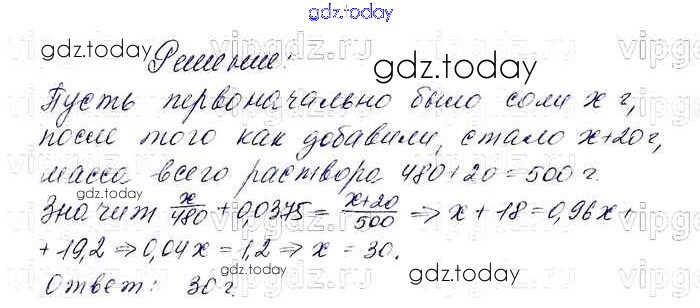 gdz.today
gdz.today
vipgdz.ru
Решение:
gdz.today
Пусть первоначально было соли x г,
после того как добавили, стало x+20 г,
масса всего раствора 480+20=500 г.
gdz.today
Значит x/480 + 0,0375 = x+20/500 ⇒ x + 18 = 0,96x +
+ 19,2 ⇒ 0,04x = 1,2 ⇒ x = 30.
gdz.today
gdz.today
Ответ: 30 г.